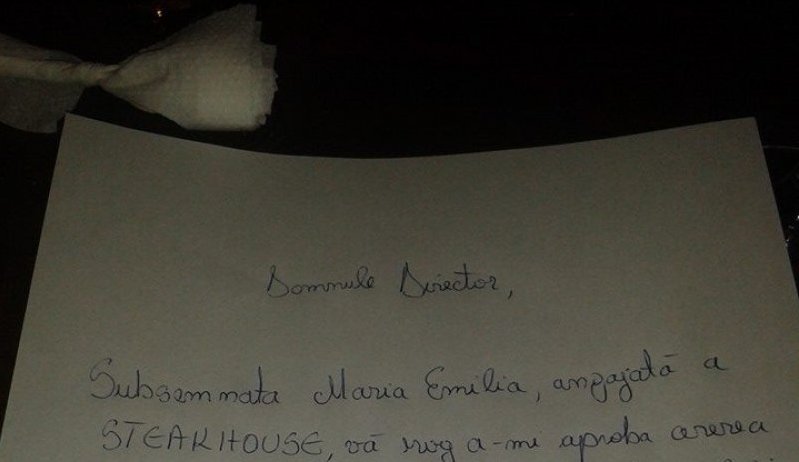 Domnule Director,
Subsemnata Maria Emilia, angajată a
STEAKHOUSE, vă rog a-mi aproba cererea